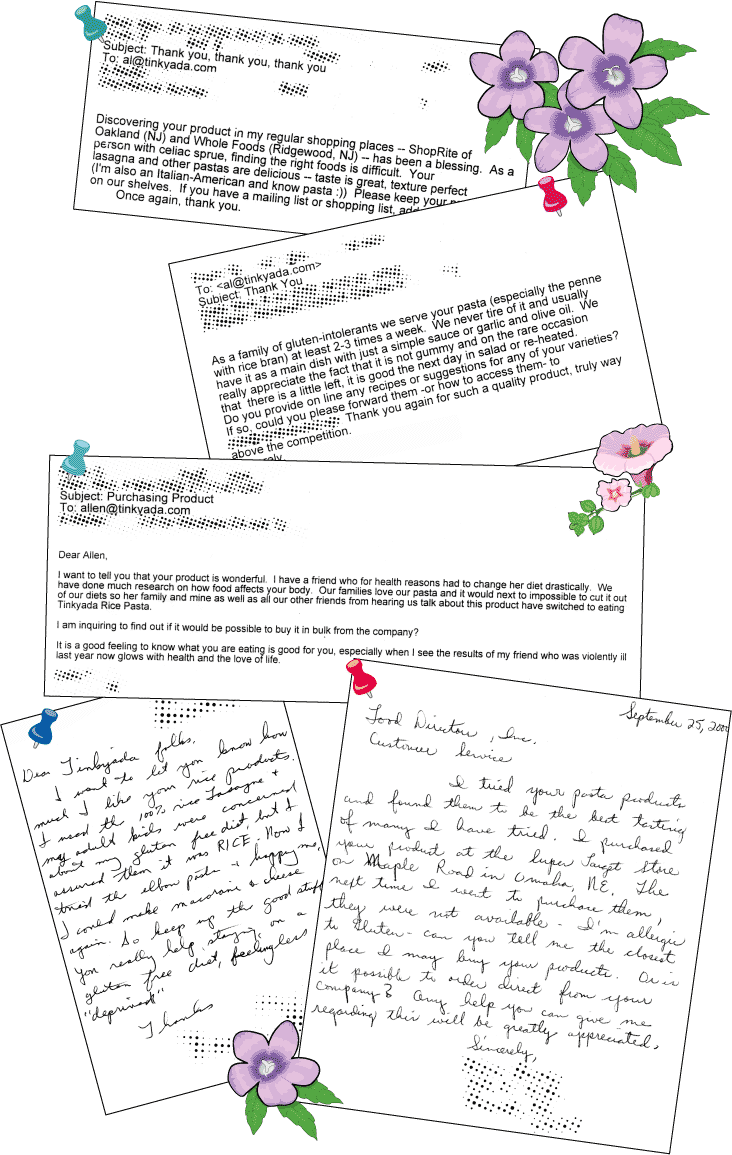 Subject: Thank you, thank you, thank you
To: al@tinkyada.com
Discovering your product in my regular shopping places -- ShopRite of
Oakland (NJ) and Whole Foods (Ridgewood, NJ) -- has been a blessing.  As a
person with celiac sprue, finding the right foods is difficult.  Your
lasagna and other pastas are delicious -- taste is great, texture perfect
(I'm also an Italian-American and know pasta :))  Please keep your
on our shelves.  If you have a mailing list or shopping list,
Once again, thank you.
To: <al@tinkyada.com>
Subject: Thank You
As a family of gluten-intolerants we serve your pasta (especially the penne
with rice bran) at least 2-3 times a week.  We never tire of it and usually
have it as a main dish with just a simple sauce or garlic and olive oil.  We
really appreciate the fact that it is not gummy and on the rare occasion
that  there is a little left, it is good the next day in salad or re-heated.
Do you provide on line any recipes or suggestions for any of your varieties?
If so, could you please forward them -or how to access them- to
Thank you again for such a quality product, truly way
above the competition.
Subject: Purchasing Product
To: allen@tinkyada.com
Dear Allen,
I want to tell you that your product is wonderful.  I have a friend who for health reasons had to change her diet drastically.  We
have done much research on how food affects your body.  Our families love our pasta and it would next to impossible to cut it out
of our diets so her family and mine as well as all our other friends from hearing us talk about this product have switched to eating
Tinkyada Rice Pasta.
I am inquiring to find out if it would be possible to buy it in bulk from the company?
It is a good feeling to know what you are eating is good for you, especially when I see the results of my friend who was violently ill
last year now glows with health and the love of life.
Dear Tinkyada folks,
I want to let you know how
much I like your rice products.
I used the 100% rice Lasagne +
my adult kids were concerned
about my gluten free diet, but I
assured them it was RICE. Now I
tried the elbow pasta + happy me,
I could make macaroni & cheese
again. So keep up the good stuff
you really help staying on a
gluten free diet, feeling less
"deprived"
Thanks
September 25, 200
Food Directions, Inc.
Customer Service
I tried your pasta products
and found them to be the best tasting
of many I have tried. I purchased
your product at the Super Target Store
on Maple Road in Omaha, NE. The
next time I went to purchase them,
they were not available - I'm allergic
to Gluten - can you tell me the closest
place I may buy your products. Or is
it possible to order direct from your
company? Any help you can give me
regarding this will be greatly appreciated.
Sincerely,